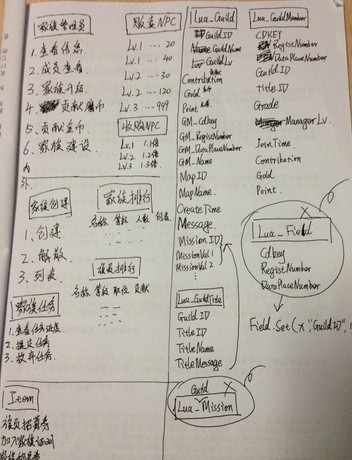 家族管理员
1. 查看信息
2. 成员查看
3. 家族升级
4. 贡献魔币
5. 贡献金币
6. 家族建设
内
外
贩卖NPC
Lv.1 ... 20
Lv.1 ... 40
Lv.2 ... 30
Lv.2 ... 120
Lv.3 ... 999
收购NPC
Lv.1 1.1倍
Lv.2 1.2倍
Lv.3 1.3倍
家族创建
1. 创建
2. 解散
3. 列表
家族排行
名称 等级 人数 创建
族员排行
名称 等级 职位 贡献
家族任务
1. 查看任务进度
2. 提交任务
3. 放弃任务
Item
族员招募券
加入家族证明
Lua_Guild
GuildID
GuildName
GuildLv
Contribution
Gold
Point
GM_Cdkey
GM_RegistNumber
GM_DataPlaceNumber
GM_Name
MapID
MapName
CreateTime
Message
MissionID
MissionVal1
MissionVal2
Lua_GuildTitle
GuildID
TitleID
TitleName
TitleMessage
Guild
Lua_Mission
Lua_GuildMember
CDKEY
RegistNumber
DataPlaceNumber
GuildID
TitleID
Grade
ManagerLv
JoinTime
Contribution
Gold
Point
Lua_Field
Cdkey
RegistNumber
DataPlaceNumber
Field.Set(x,"GuildID",